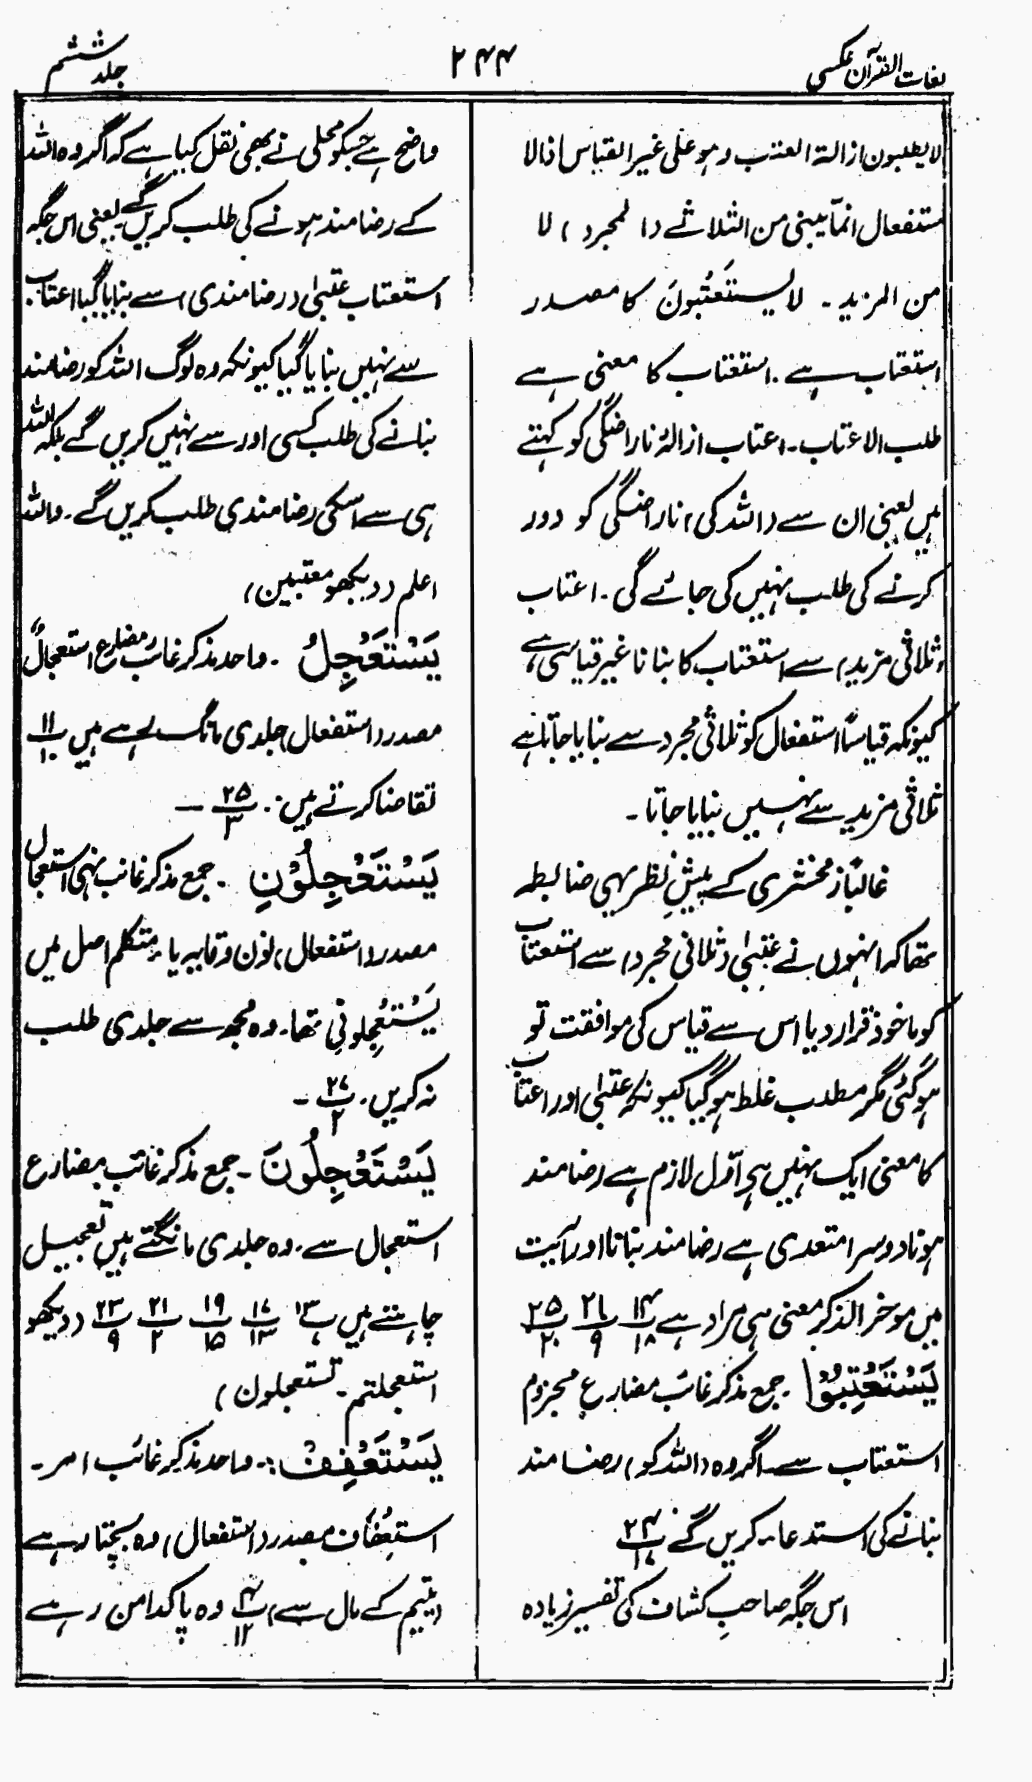 لغات القرآن عکسی
۲۴۴
جلد ششم
لا یطلبون ازالۃ العتب وہو علی غیر القیاس اذالا
ستفعال انما یبنی من الثلاثے (المجرد) لا
من المزید۔ لا یستَعتَبُونَ کا مصدر
استعتاب ہے۔ استعتاب کا معنی ہے
طلب الاعتاب۔ اعتاب ازالۂ ناراضگی کو کہتے
ہیں یعنی ان سے (اللہ کی) ناراضگی کو دور
کرنے کی طلب نہیں کی جائے گی۔ اعتاب
(ثلاثی مزید) سے استعتاب کا بنانا غیر قیاسی ہے
کیونکہ قیاساً استفعال کو ثلاثی مجرد سے بنایا جاتا ہے
ثلاثی مزید سے نہیں بنایا جاتا۔
غالباً زمخشری کے پیشِ نظر یہی ضابطہ
تھا کہ انہوں نے عتبیٰ (ثلاثی مجرد) سے استعتاب
کو ماخوذ قرار دیا اس سے قیاس کی موافقت تو
ہوگئی مگر مطلب غلط ہوگیا کیونکہ عتبیٰ اور اعتاب
کا معنی ایک نہیں ہے اول لازم ہے رضامند
ہونا دوسرا متعدی ہے رضامند بنانا اور آیت
میں موخر الذکر معنی ہی مراد ہے ۱۴/۱۸ ۲۱/۹ ۲۵/۲۰
یَسْتَعْتِبُوْا۔ جمع مذکر غائب مضارع مجزوم
استعتاب سے۔ اگر وہ (اللہ کو) رضامند
بنانے کی استدعاء کریں گے ۲۴/۱۷
اس جگہ صاحبِ کشاف کی تفسیر زیادہ
واضح ہے جسکو محلی نے بھی نقل کیا ہے کہ اگر وہ اللہ
کے رضامند ہونے کی طلب کریں گے یعنی اس جگہ
استعتاب عتبیٰ (رضامندی) سے بنایا گیا اعتاب
سے نہیں بنایا گیا کیونکہ وہ لوگ اللہ کو رضامند
بنانے کی طلب کسی اور سے نہیں کریں گے بلکہ اللہ
ہی سے اسکی رضامندی طلب کریں گے۔ واللہ
اعلم (دیکھو معتبین)
یَسْتَعْجِلُ۔ واحد مذکر غائب مضارع استعجالٌ
مصدر (استفعال) جلدی مانگ رہے ہیں ۱۱/۱۰
تقاضا کرتے ہیں۔ ۲۵/۳ —
یَسْتَعْجِلُوْنِ۔ جمع مذکر غائب نہی استعجال
مصدر (استفعال) نون وقایہ یاء متکلم اصل میں
یَسْتَعْجِلُونِی تھا۔ وہ مجھ سے جلدی طلب
نہ کریں۔ ۲۷/۲ —
یَسْتَعْجِلُونَ۔ جمع مذکر غائب مضارع
استعجال سے۔ وہ جلدی مانگتے ہیں تعجیل
چاہتے ہیں ۱۳/۷ ۱۷/۱۳ ۱۹/۱۵ ۲۱/۲ ۲۳/۹ (دیکھو
استعجلتم۔ تستعجلون)
یَسْتَعْفِفْ:۔ واحد مذکر غائب امر۔
استعِفَاف مصدر (استفعال) وہ بچتا رہے
(یتیم کے مال سے) ۴/۱۲ وہ پاکدامن رہے